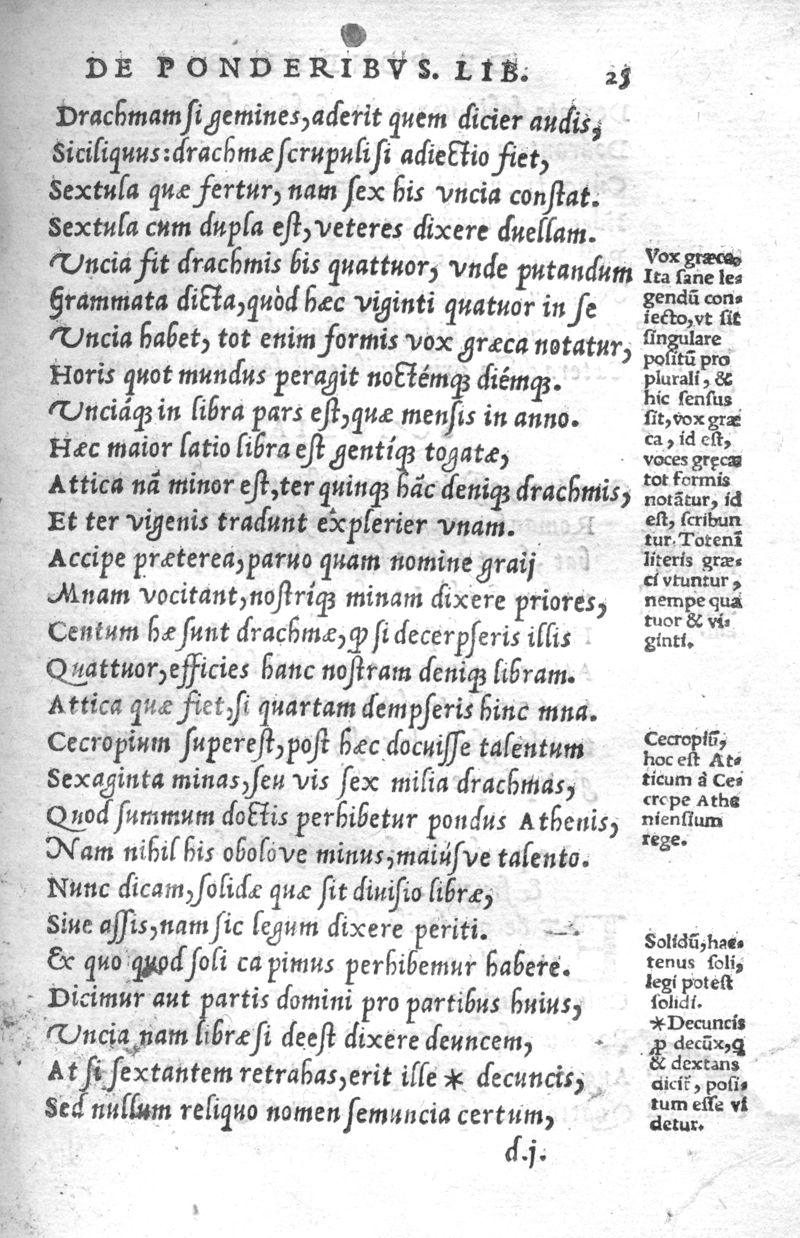 DE PONDERIBVS. LIB. 25
Drachmam si gemines, aderit quem dicier audis,
Siciliquus: drachmæ scrupuli si adiectio fiet,
Sextula quæ fertur, nam sex his vncia constat.
Sextula cum dupla est, veteres dixere duellam.
Uncia fit drachmis bis quattuor, vnde putandum
Grammata dicta, quòd hæc viginti quatuor in se
Uncia habet, tot enim formis vox græca notatur,
Horis quot mundus peragit noctémq; diémq;.
Unciáq; in libra pars est, quæ mensis in anno.
Hæc maior latio libra est gentíq; togatæ,
Attica nā minor est, ter quinq; hāc deniq; drachmis,
Et ter vigenis tradunt explerier vnam.
Accipe præterea, paruo quam nomine graij
Mnam vocitant, nostríq; minam dixere priores,
Centum hæ sunt drachmæ, ꝙ si decerpseris illis
Quattuor, efficies hanc nostram deniq; libram.
Attica quæ fiet, si quartam dempseris hinc mna.
Cecropium superest, post hæc docuisse talentum
Sexaginta minas, seu vis sex milia drachmas,
Quod summum doctis perhibetur pondus Athenis,
Nam nihil his obolóve minus, maiúsve talento.
Nunc dicam, solidæ quæ sit diuisio libræ,
Siue assis, nam sic legum dixere periti.
Ex quo quod soli capimus perhibemur habere.
Dicimur aut partis domini pro partibus huius,
Uncia nam libræ si deest dixere deuncem,
At si sextantem retrahas, erit ille * decuncis,
Sed nullum reliquo nomen semuncia certum,
d.j.
Vox græca,
Ita sane le-
gendū con-
iecto, vt sit
singulare
positū pro
plurali, &
hic sensus
sit, vox græ
ca, id est,
voces gręcæ
tot formis
notātur, id
est, scribun
tur. Tot enī
literis græ-
ci vtuntur,
nempe qua
tuor & vi-
ginti.
Cecropiū,
hoc est At-
ticum à Ce-
crope Athe
niensium
rege.
Solidū, hac-
tenus soli,
legi potest
solidi.
*Decuncis
ꝓ decūx, q
& dextans
dicit̄, posi-
tum esse vi
detur.